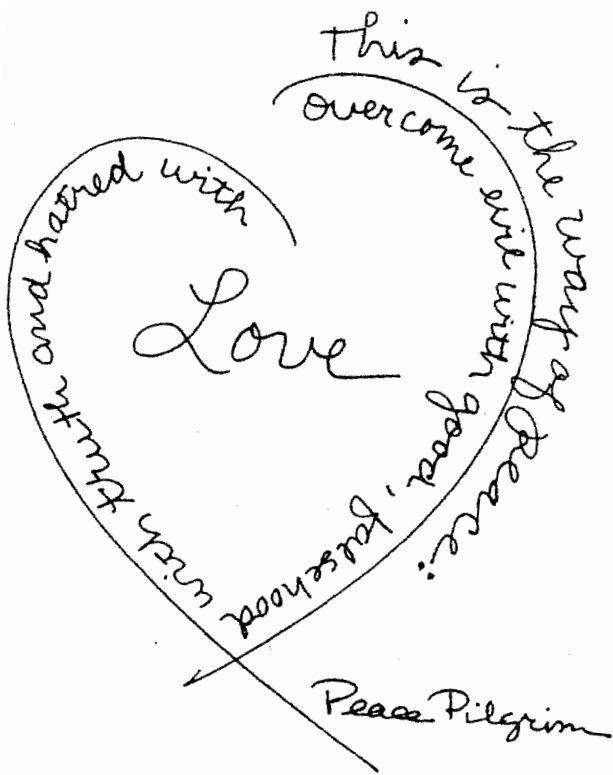 This is the way of peace:
overcome evil with good, falsehood
with truth and hatred with
Love
Peace Pilgrim